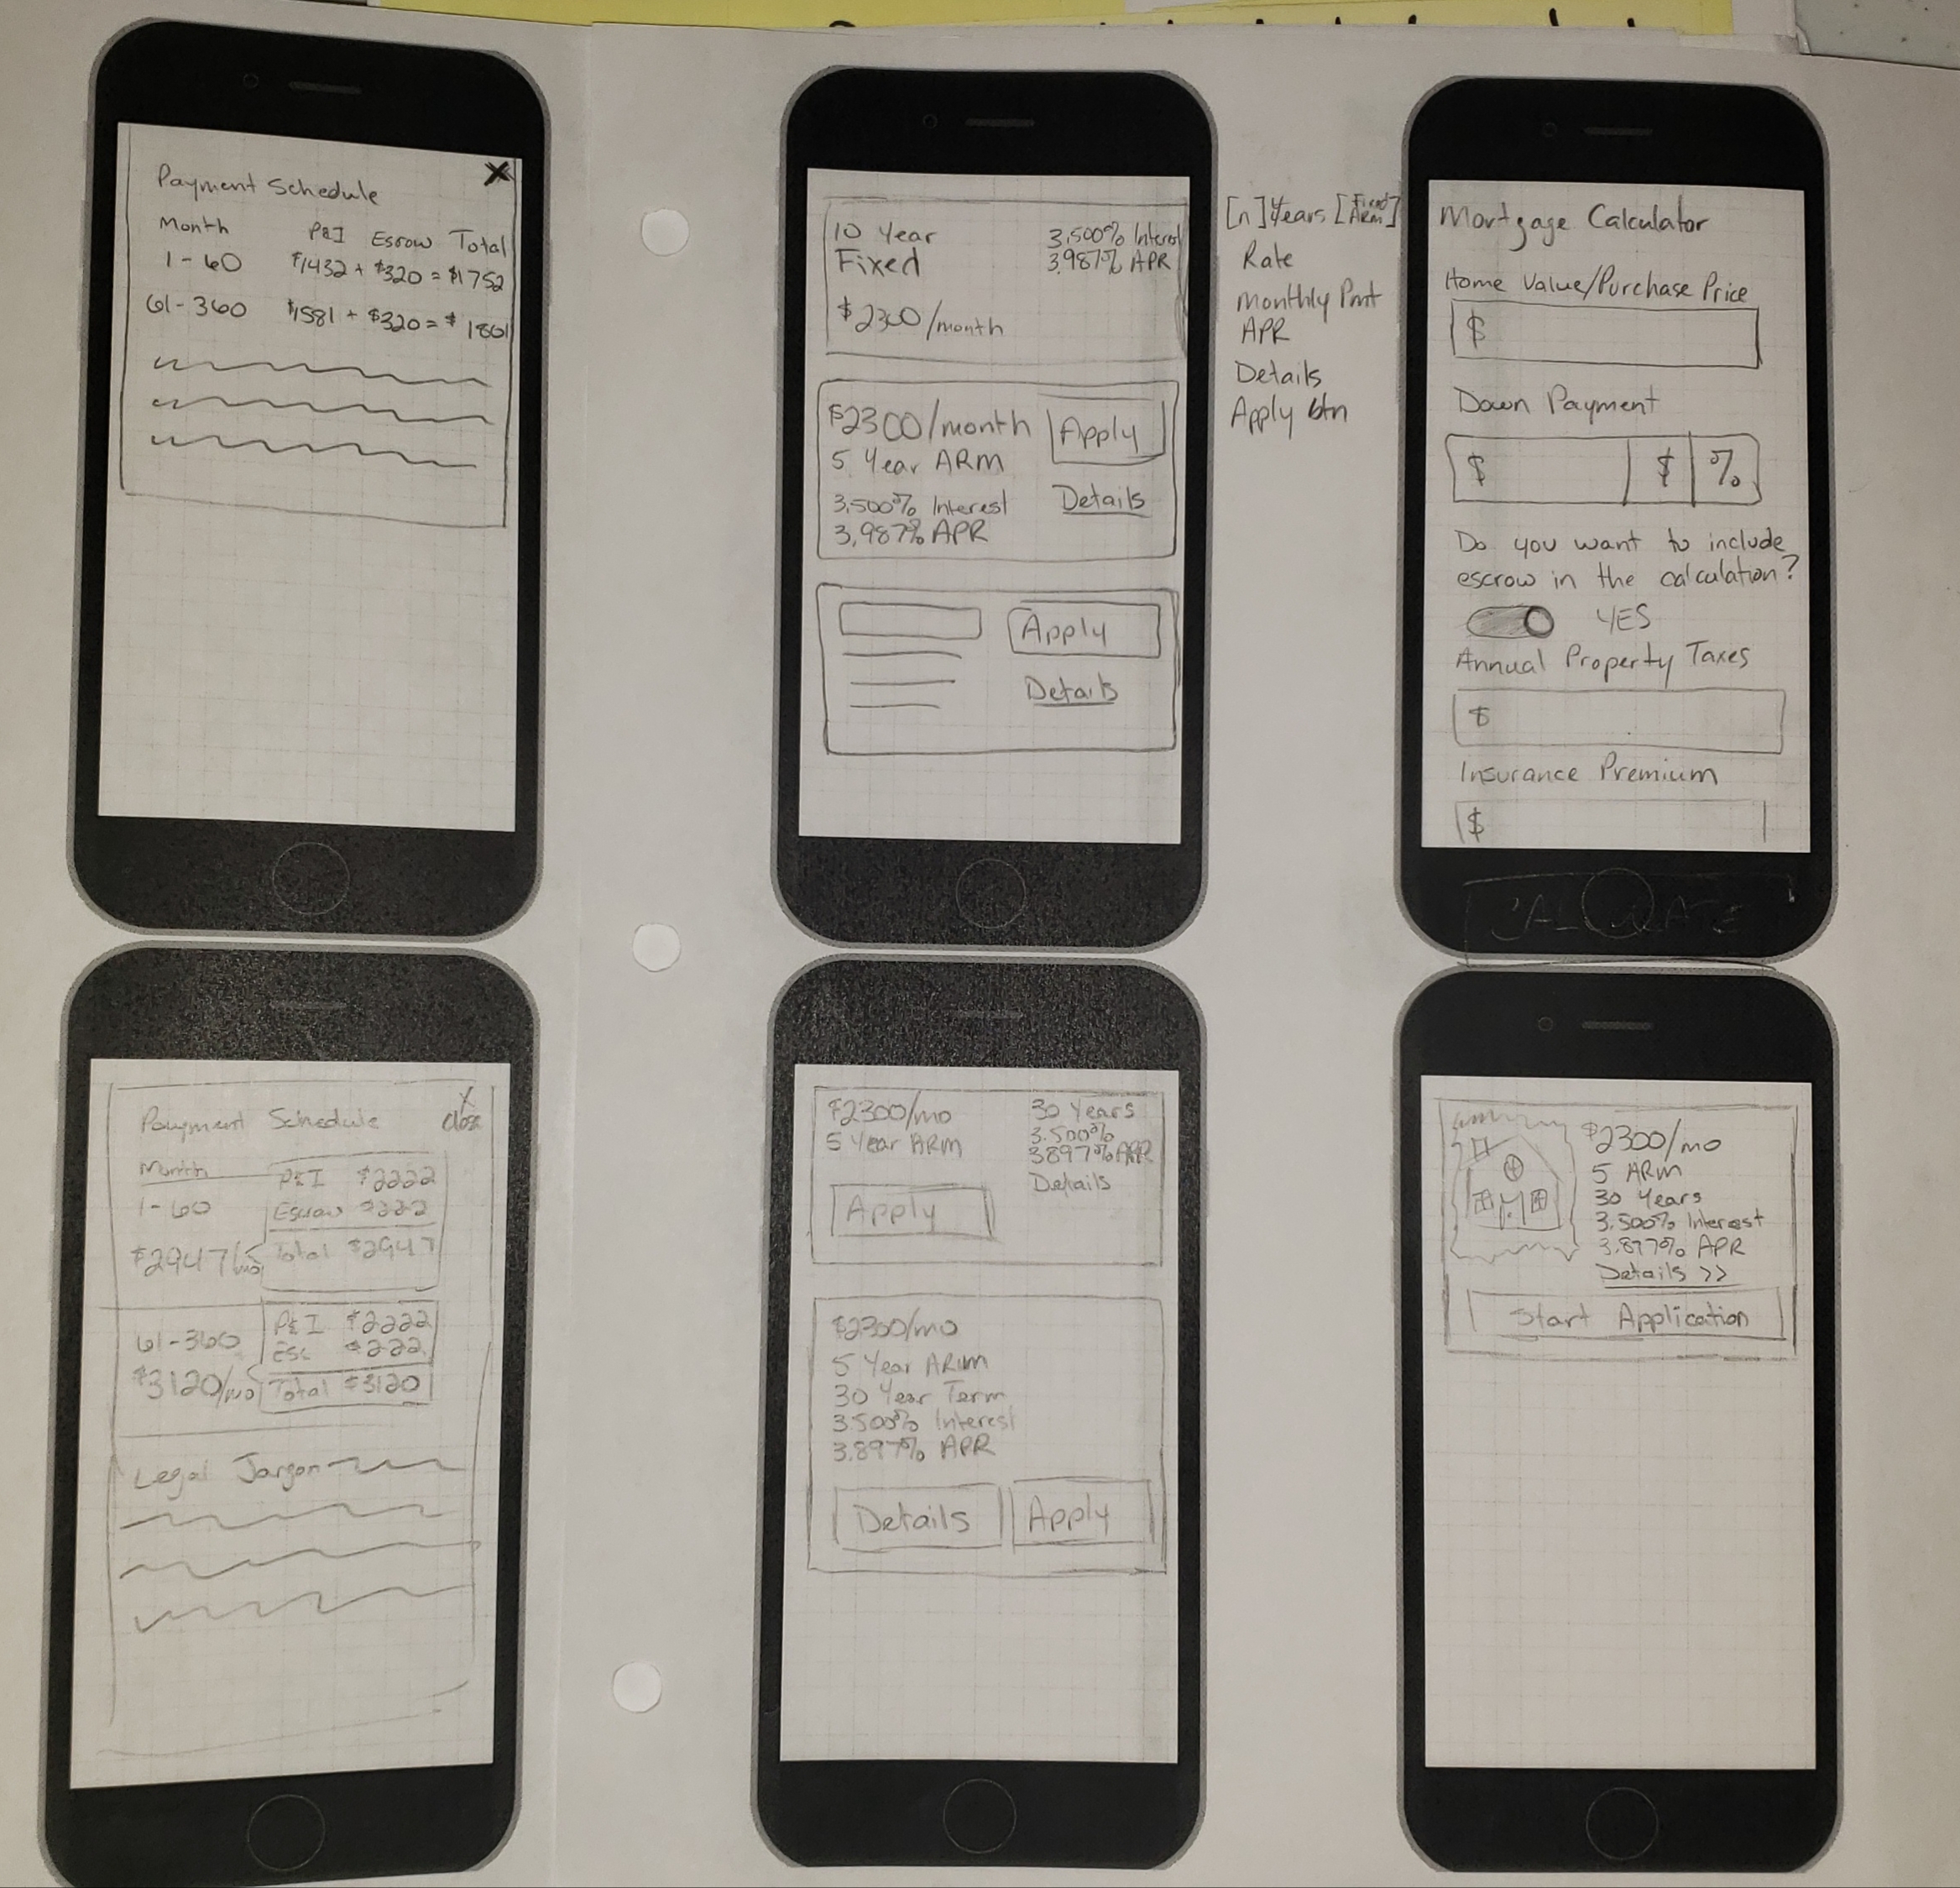 Payment Schedule X
Month P&I Escrow Total
1-60 $1432 + $320 = $1752
61-360 $1581 + $320 = $1801
10 Year
Fixed
3.500% Interest
3.987% APR
$2300/month
$2300/month
5 Year ARM
3.500% Interest
3.987% APR
Apply
Details
Apply
Details
[n] Years [Fixed ARM]
Rate
Monthly Pmt
APR
Details
Apply btn
Mortgage Calculator
Home Value/Purchase Price
$
Down Payment
$ $ %
Do you want to include
escrow in the calculation?
YES
Annual Property Taxes
$
Insurance Premium
$
CALCULATE
Payment Schedule X
Close
Month
1-60
$2947/mo
P&I $2222
Escrow $222
Total $2947
61-360
$3120/mo
P&I $2222
Esc $222
Total $3120
Legal Jargon
$2300/mo
5 Year ARM
Apply
30 Years
3.500%
3.897% APR
Details
$2300/mo
5 Year ARM
30 Year Term
3.500% Interest
3.897% APR
Details Apply
$2300/mo
5 ARM
30 Years
3.500% Interest
3.877% APR
Details >>
Start Application